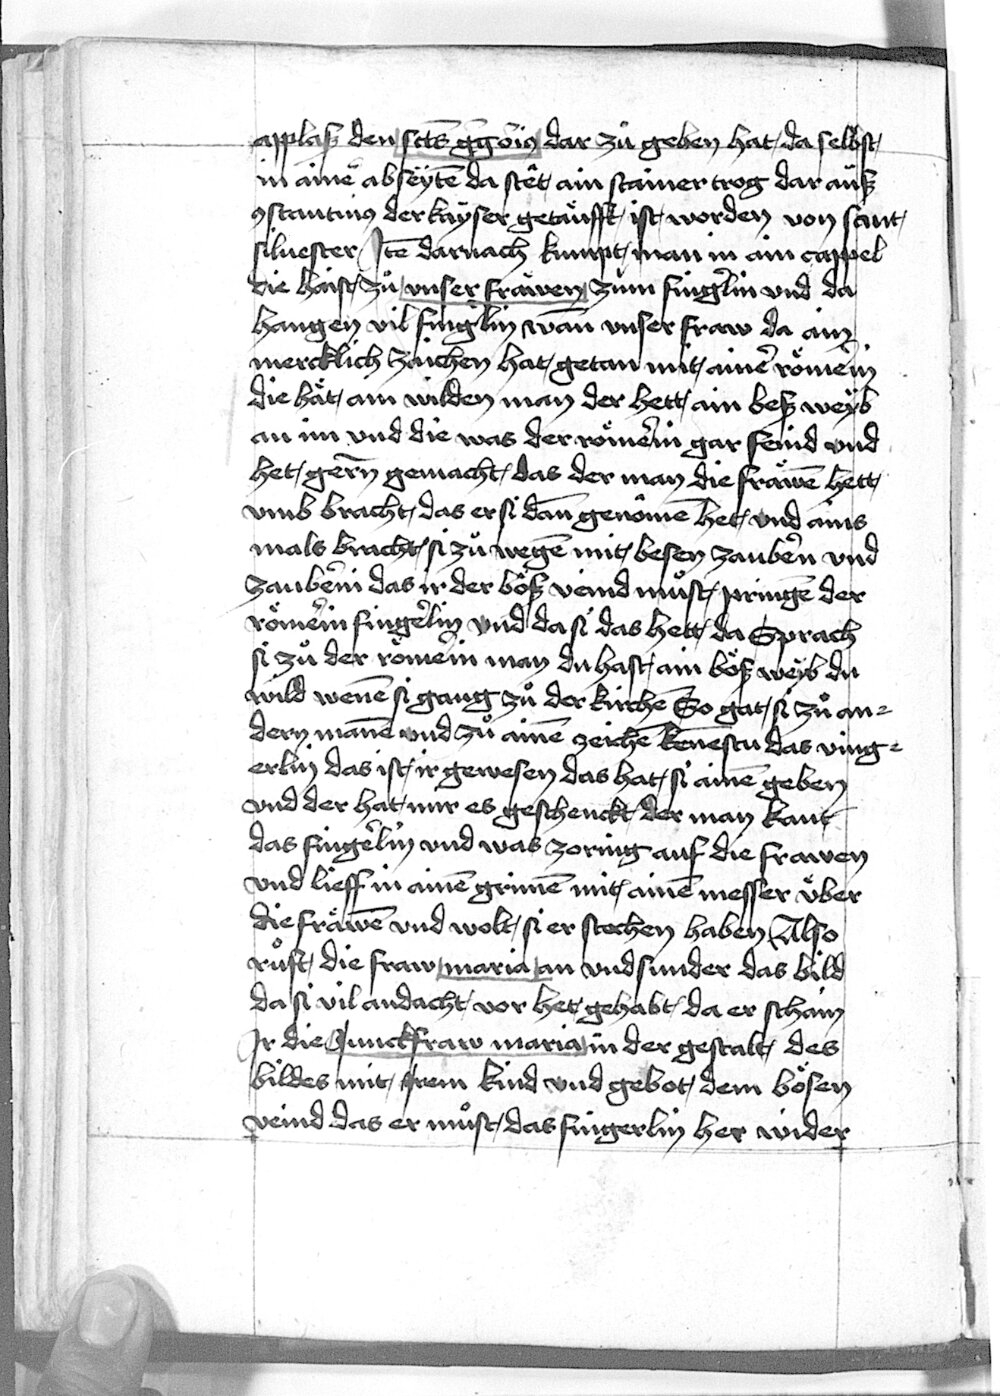 applasz den sctūs ġgōrīꝰ dar zů geben hat da selbst
in ainē abseÿtē da stêt ain stainer trog dar aůsz
ꝯstantinꝰ der kaÿser getaͤufft ist worden von sant
siluester Itē darnach kumpt man in ain cappel
die haist zů vnser fraͤwen zům fing̓lin vnd da
hangen vil fing̓lin wān vnser fraw da ain
mercklich zaichen hat getan mit ainer̄ roͤmer̄in
die haͤt ain wilden man der hett ain besz weÿb
an im vnd die was der roͤmer̄in gar feind vnd
het gern̄ gemacht das der man die fraͤwē hett
vmb bracht das er si dān genômē het vnd ains
mals bracht si zů wegē mit besen zauber̄n vnd
zauber̄in das ir der boͤsz veind můst pringē der
roͤmer̄in finger̄lin vnd da si das hett da Sprach
si zů der roͤmer̄in man du hast ain boͤsz weÿb du
wild wenē si gang zů der kirchē So gat si zů an=
dern manē vnd zů ainē zeichē kenestu das ving=
erlin das ist ir gewesen das hat si ainē geben
vnd der hat mir es geschenckt der man kant
das finger̄lin vnd was zornig auf die frawen
vnd lieff in ainē grimē mit ainē messer uͤber
die fraͤwē vnd wolt si er stechen haben Also
růft die fraw maria an vnd sunder das bild
da si vil andacht vor het gehabt da er schain
Ir die Junckfraw maria in der gestalt des
bildes mit irem kind vnd gebot dem boͤsen
veind das er můst das fingerlin her wider